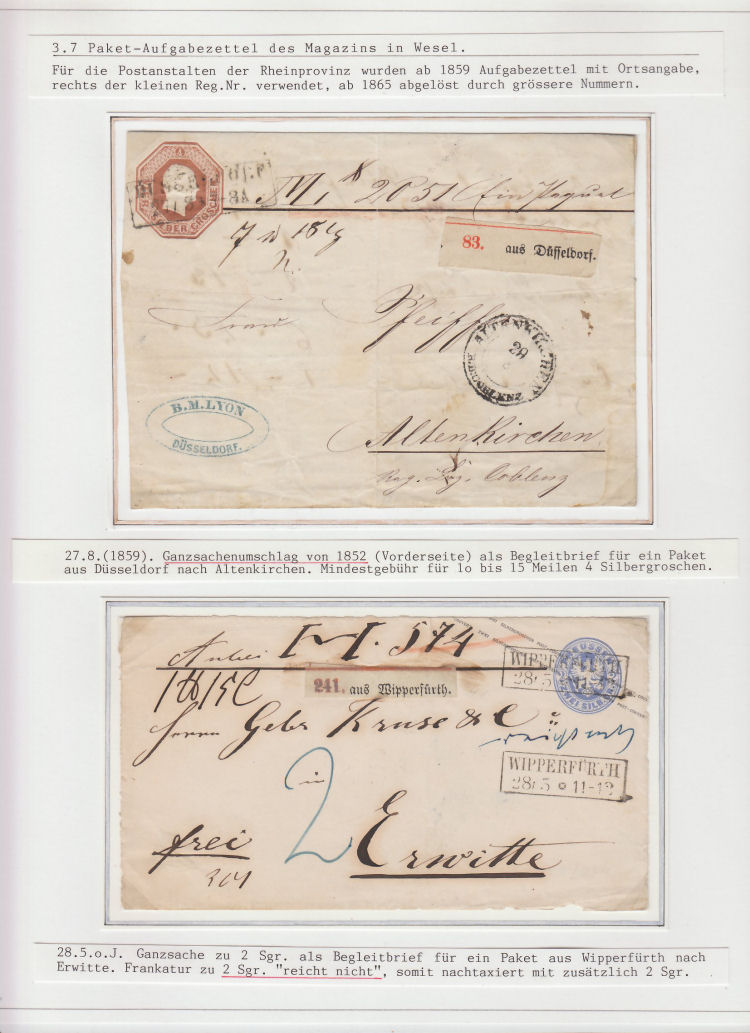 3.7 Paket-Aufgabezettel des Magazins in Wesel.
Für die Postanstalten der Rheinprovinz wurden ab 1859 Aufgabezettel mit Ortsangabe,
rechts der kleinen Reg.Nr. verwendet, ab 1865 abgelöst durch grössere Nummern.
DER GROSCHE
2051 Ein Paquet
83. aus Düsseldorf.
Frau Pfeiffer
ALTENKIRCHEN
29
B.M.LYON
DÜSSELDORF.
Altenkirchen
Reg. Bez. Coblenz
27.8.(1859). Ganzsachenumschlag von 1852 (Vorderseite) als Begleitbrief für ein Paket
aus Düsseldorf nach Altenkirchen. Mindestgebühr für 1o bis 15 Meilen 4 Silbergroschen.
574
WIPPERFÜRTH
28/5
241. aus Wipperfürth.
Herren Gebr Kruse & C
reicht nicht
WIPPERFÜRTH
28/5 11-12
in
2
Erwitte
frei
28.5.o.J. Ganzsache zu 2 Sgr. als Begleitbrief für ein Paket aus Wipperfürth nach
Erwitte. Frankatur zu 2 Sgr. "reicht nicht", somit nachtaxiert mit zusätzlich 2 Sgr.